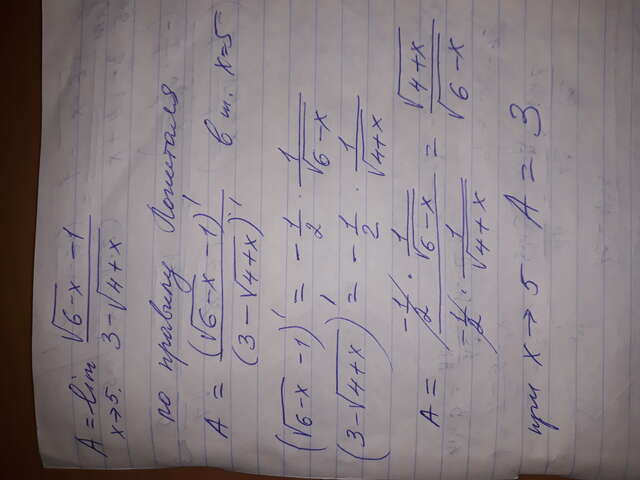 A = lim x→5. (√(6-x) - 1)/(3 - √(4+x))
по правилу Лопиталя
A = (√(6-x) - 1)'/(3 - √(4+x))' в т. x=5
(√(6-x) - 1)' = -1/2 · 1/√(6-x)
(3 - √(4+x))' = -1/2 · 1/√(4+x)
A = (-1/2 · 1/√(6-x))/(-1/2 · 1/√(4+x)) = √(4+x)/√(6-x)
при x → 5 A = 3